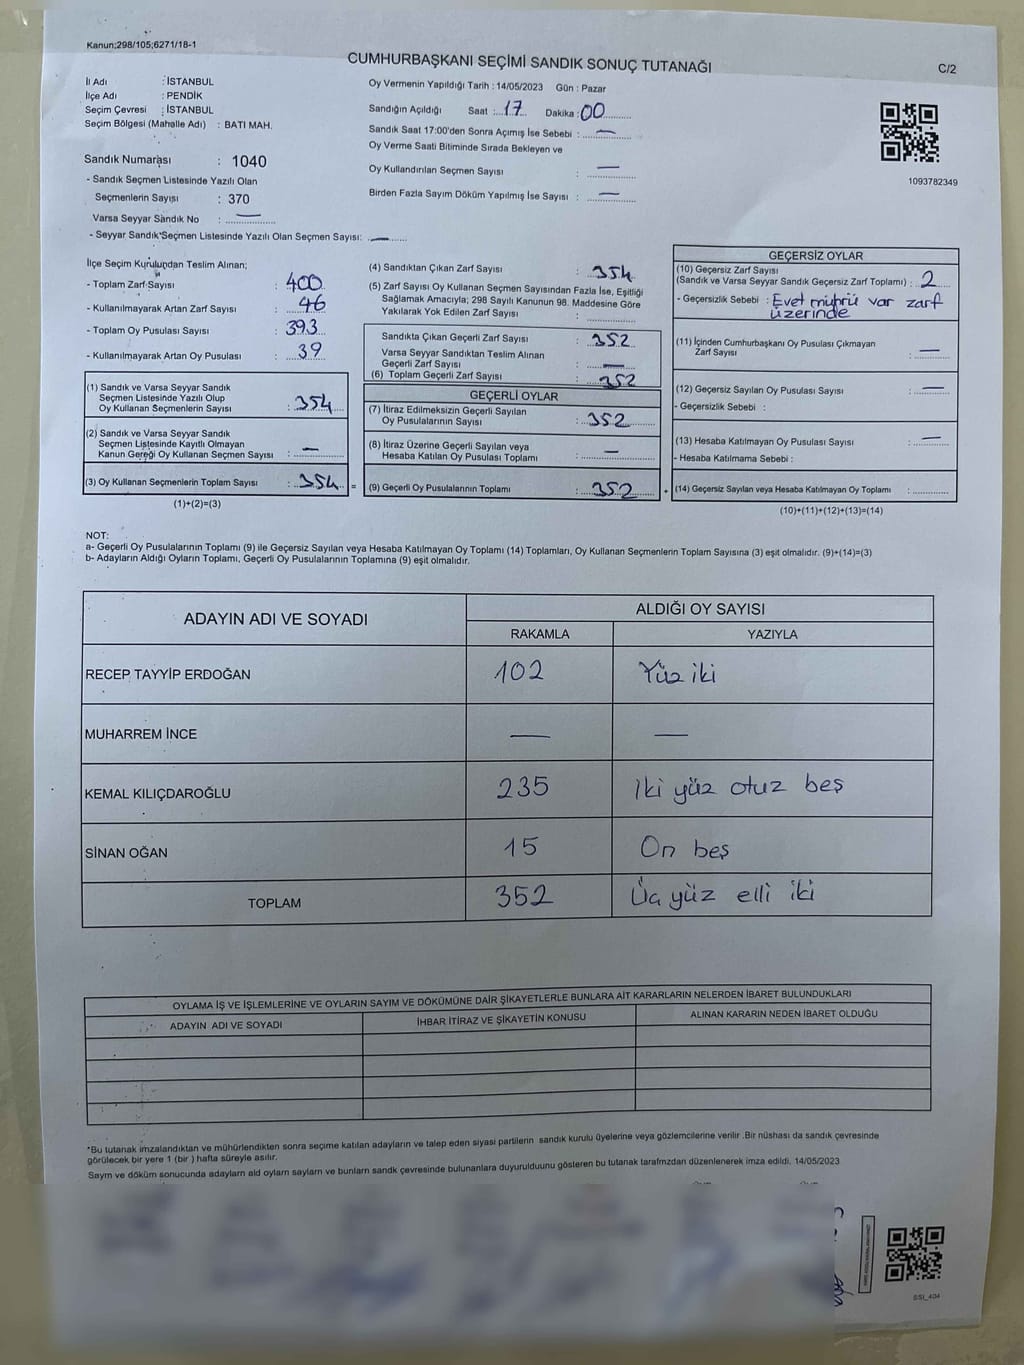 Kanun;298/105;6271/18-1
CUMHURBAŞKANI SEÇİMİ SANDIK SONUÇ TUTANAĞI
C/2
İl Adı : İSTANBUL
İlçe Adı : PENDİK
Seçim Çevresi : İSTANBUL
Seçim Bölgesi (Mahalle Adı) : BATI MAH.
Sandık Numarası : 1040
- Sandık Seçmen Listesinde Yazılı Olan
Seçmenlerin Sayısı : 370
Varsa Seyyar Sandık No : —
- Seyyar Sandık Seçmen Listesinde Yazılı Olan Seçmen Sayısı: —
Oy Vermenin Yapıldığı Tarih : 14/05/2023 Gün : Pazar
Sandığın Açıldığı Saat : 17 Dakika : 00
Sandık Saat 17:00'den Sonra Açımış İse Sebebi : —
Oy Verme Saati Bitiminde Sırada Bekleyen ve
Oy Kullandırılan Seçmen Sayısı : —
Birden Fazla Sayım Döküm Yapılmış İse Sayısı : —
1093782349
İlçe Seçim Kurulundan Teslim Alınan;
- Toplam Zarf Sayısı : 400
- Kullanılmayarak Artan Zarf Sayısı : 46
- Toplam Oy Pusulası Sayısı : 393
- Kullanılmayarak Artan Oy Pusulası : 39
(1) Sandık ve Varsa Seyyar Sandık
Seçmen Listesinde Yazılı Olup
Oy Kullanan Seçmenlerin Sayısı : 354
(2) Sandık ve Varsa Seyyar Sandık
Seçmen Listesinde Kayıtlı Olmayan
Kanun Gereği Oy Kullanan Seçmen Sayısı : —
(3) Oy Kullanan Seçmenlerin Toplam Sayısı : 354 =
(1)+(2)=(3)
(4) Sandıktan Çıkan Zarf Sayısı : 354
(5) Zarf Sayısı Oy Kullanan Seçmen Sayısından Fazla İse, Eşitliği
Sağlamak Amacıyla; 298 Sayılı Kanunun 98. Maddesine Göre
Yakılarak Yok Edilen Zarf Sayısı :
Sandıkta Çıkan Geçerli Zarf Sayısı : 352
Varsa Seyyar Sandıktan Teslim Alınan
Geçerli Zarf Sayısı : —
(6) Toplam Geçerli Zarf Sayısı : 352
GEÇERLİ OYLAR
(7) İtiraz Edilmeksizin Geçerli Sayılan
Oy Pusulalarının Sayısı : 352
(8) İtiraz Üzerine Geçerli Sayılan veya
Hesaba Katılan Oy Pusulası Toplamı : —
(9) Geçerli Oy Pusulalarının Toplamı : 352 +
GEÇERSİZ OYLAR
(10) Geçersiz Zarf Sayısı
(Sandık ve Varsa Seyyar Sandık Geçersiz Zarf Toplamı) : 2
- Geçersizlik Sebebi : Evet mührü var zarf
üzerinde
(11) İçinden Cumhurbaşkanı Oy Pusulası Çıkmayan
Zarf Sayısı : —
(12) Geçersiz Sayılan Oy Pusulası Sayısı : —
- Geçersizlik Sebebi :
(13) Hesaba Katılmayan Oy Pusulası Sayısı : —
- Hesaba Katılmama Sebebi :
(14) Geçersiz Sayılan veya Hesaba Katılmayan Oy Toplamı :
(10)+(11)+(12)+(13)=(14)
NOT:
a- Geçerli Oy Pusulalarının Toplamı (9) ile Geçersiz Sayılan veya Hesaba Katılmayan Oy Toplamı (14) Toplamları, Oy Kullanan Seçmenlerin Toplam Sayısına (3) eşit olmalıdır. (9)+(14)=(3)
b- Adayların Aldığı Oyların Toplamı, Geçerli Oy Pusulalarının Toplamına (9) eşit olmalıdır.
ADAYIN ADI VE SOYADI
ALDIĞI OY SAYISI
RAKAMLA YAZIYLA
RECEP TAYYİP ERDOĞAN 102 Yüz iki
MUHARREM İNCE — —
KEMAL KILIÇDAROĞLU 235 İki yüz otuz beş
SİNAN OĞAN 15 On beş
TOPLAM 352 Üç yüz elli iki
OYLAMA İŞ VE İŞLEMLERİNE VE OYLARIN SAYIM VE DÖKÜMÜNE DAİR ŞİKAYETLERLE BUNLARA AİT KARARLARIN NELERDEN İBARET BULUNDUKLARI
ADAYIN ADI VE SOYADI İHBAR İTİRAZ VE ŞİKAYETİN KONUSU ALINAN KARARIN NEDEN İBARET OLDUĞU
*Bu tutanak imzalandıktan ve mühürlendikten sonra seçime katılan adayların ve talep eden siyasi partilerin sandık kurulu üyelerine veya gözlemcilerine verilir .Bir nüshası da sandık çevresinde
görülecek bir yere 1 (bir ) hafta süreyle asılır.
Saym ve döküm sonucunda adaylarn ald oylarn saylarn ve bunlarn sandk çevresinde bulunanlara duyurulduunu gösteren bu tutanak tarafmzdan düzenlenerek imza edildi. 14/05/2023
SSI_404